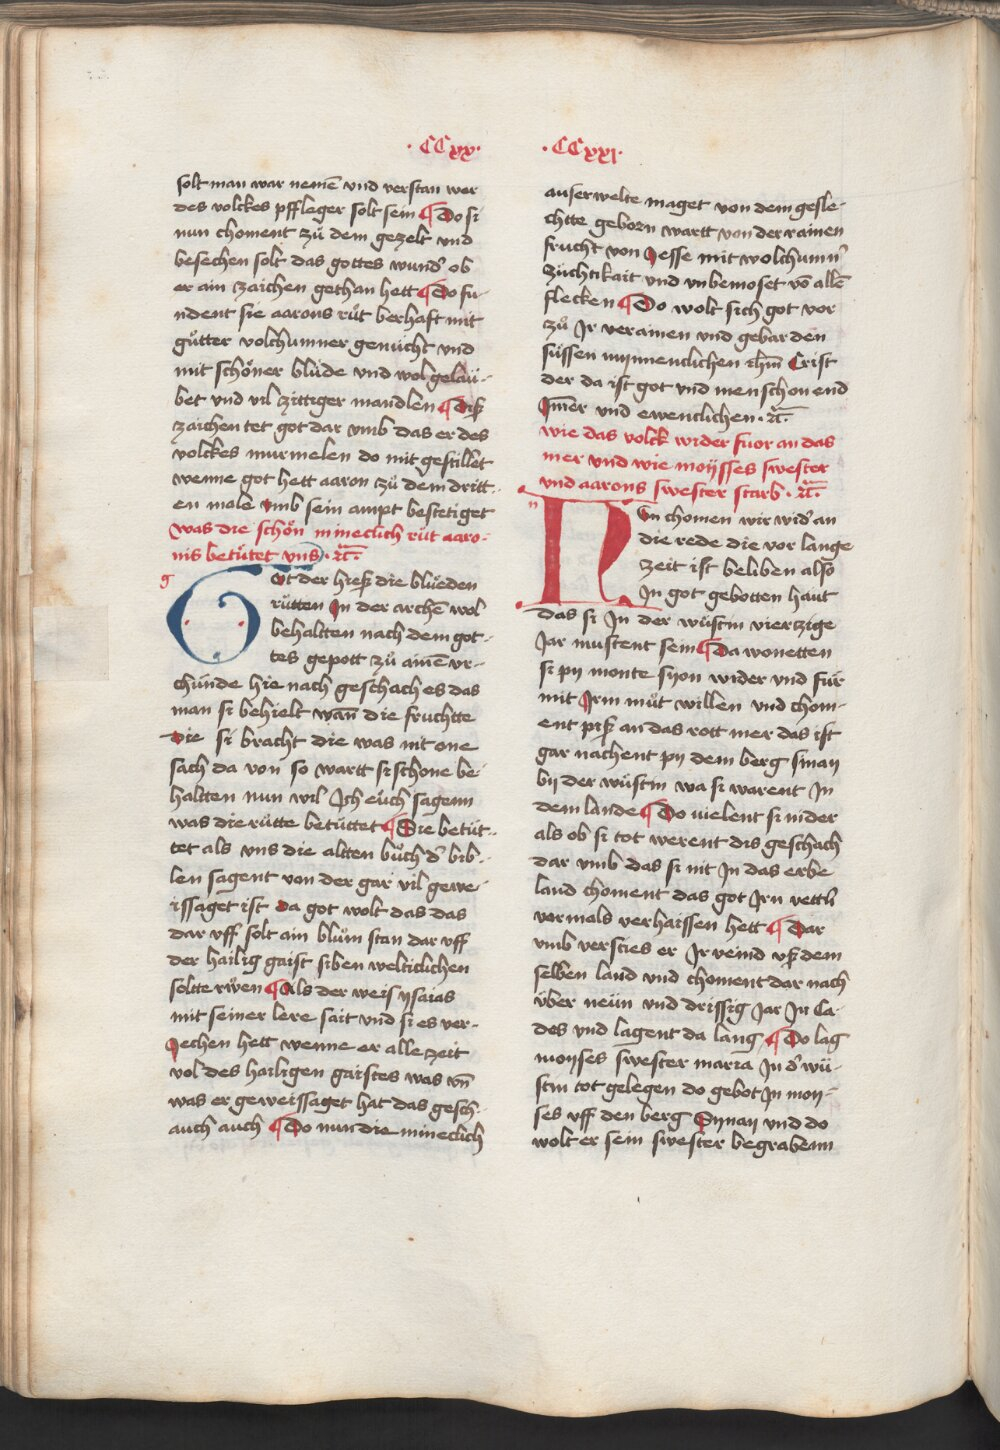 · CCxx ·
solt man war nemē vnd verstan wer
des volckes pffleger solt sein ¶ Do si
nun choment zů dem gezelt vnd
besechen solt das gottes wund' ob
er ain zaichen gethan hett ¶ Do fu-
ndent sie aarons růt berhaft mit
gůtter volchumner genücht vnd
mit schöner blüde vnd wol gelaü-
bet vnd vil zittiger mandlen ¶ Diß
zaichen tet got dar vmb das er des
volckes murmelen do mit gestillet
wenne got hett aaron zů dem dritt-
en male vmb sein ampt bestetiget
was die schön mineclich růt aaro-
nis betütet vns · rc̄ ·
g
Got der hieß die blüeden
růtten Jn der archē wol
behaltten nach dem got-
tes gepott zů ainē vr-
chünde hie nach geschach es das
man si behielt wañ die fruchtte
Die si bracht die was nit one
sach da von so wartt si schone be-
haltten nun wil Jch eüch sagenn
was die růtte betüttet ¶ Die betüt-
tet als vns die altten bůch d' bib-
len sagent von der gar vil gewe-
issaget ist Da got wolt das das
dar vff solt ain blům stan dar vff
der hailig gaist siben welticlichen
soltte rwen ¶ Als der weis ysaias
mit seiner lere sait vnd si es ver-
Jechen hett wenne er alle zeit
vol des hailigen gaistes was vn̄
was er geweissaget hat das gesch-
auch auch ¶ Do nun die mineclich
· CCxxj ·
auserwelte maget von dem gesle-
chtte geborn wartt von der rainen
frucht von Jesse mit wolchumn'
züchtikait vnd vnbemoset vō allē
flecken ¶ Do wolt sich got vor
zů Jr verainen vnd gebar den
süssen mynnenclichen ihm̄ Crist
der da ist got vnd menschon end
Jmer vnd ewenclichen · rc̄ ·
wie das volck wider fuor an das
mer vnd wie moysses swester
vnd aarons swester starb · rc̄ ·
n
Nun chomen wir wid' an
die rede die vor lange
zeit ist beliben also
Jn got gebotten haut
das si Jn der wüstin vierzige
Jar mustent sein ¶ Da wonetten
si py monte syon wider vnd für
mit Jrm můt willen vnd chom-
ent piß an das rott mer das ist
gar nachent py dem berg sinay
bij der wüstin wa si warent Jn
dem lande ¶ Do vielent si nider
als ob si tot werent dis geschach
dar vmb das si nit Jn das erbe
land choment das got Jrn vettn
vormals verhaissen hett ¶ Dar
vmb versties er Jr veind vß dem
selben land vnd choment dar nach
über neün vnd drissig Jar Jn Ca-
des vnd lagent da lang ¶ Do lag
moyses swester maria Jn d' wü-
stin tot gelegen do gebot Jn moy-
ses vff den berg Synay vnd do
wolt er sein swester begrabenn